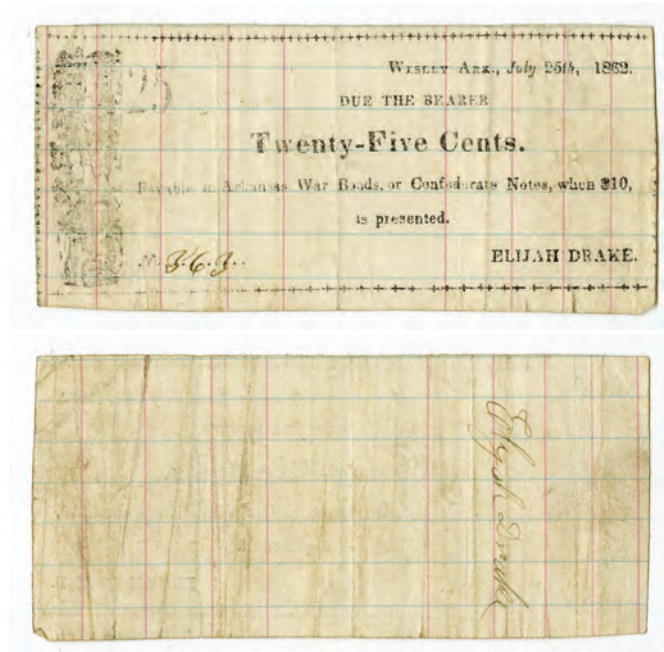 WESLEY ARK., July 25th, 1862.
25
DUE THE BEARER
Twenty-Five Cents.
Payable in Arkansas War Bonds, or Confederate Notes, when $10,
is presented.
No. 363..
ELIJAH DRAKE.
Elijah Drake